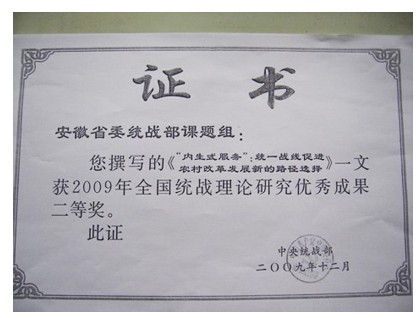 证书
安徽省委统战部课题组：
您撰写的《“内生式服务”：统一战线促进
农村改革发展新的路径选择》一文
获2009年全国统战理论研究优秀成果
二等奖。
此证
中央统战部
二〇〇九年十二月